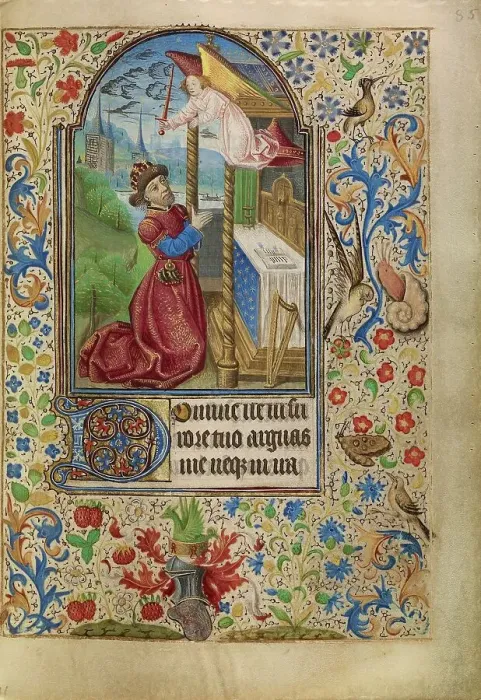 85
Domine ne in fu
rore tuo arguas
me neqꝫ in ira